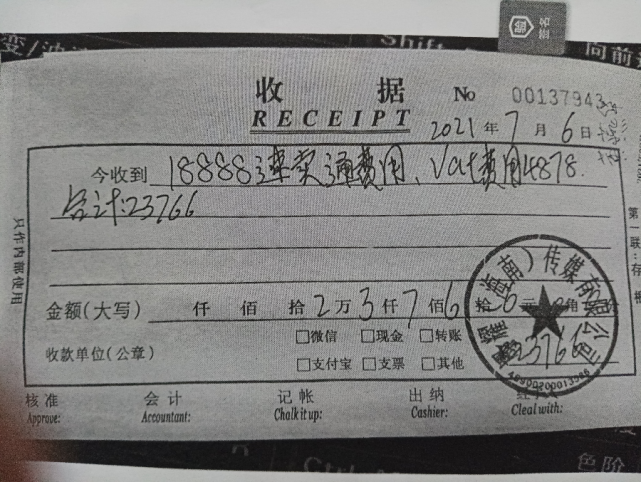 变/油漆
Shift
向前
签名
收 据 No 00137943
RECEIPT
2021年7月6日
今收到 18888速卖通费用、Vat费用4878.
合计:23766
只作内部使用
第一联:存
金额(大写) 仟 佰 拾2万3仟7佰6拾6元 角
微信 现金 转账
收款单位(公章) 支付宝 支票 其他
23766
南)传媒有限公司
核准 会计 记帐 出纳
Approve: Accountant: Chalk it up: Cashier: Cleal with:
色阶